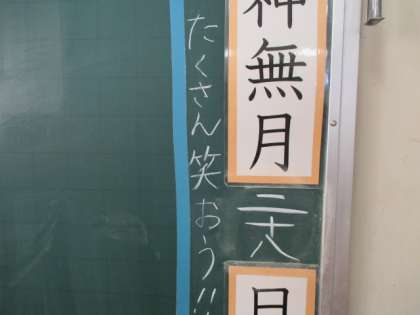 神無月二十八日
たくさん笑おう!!